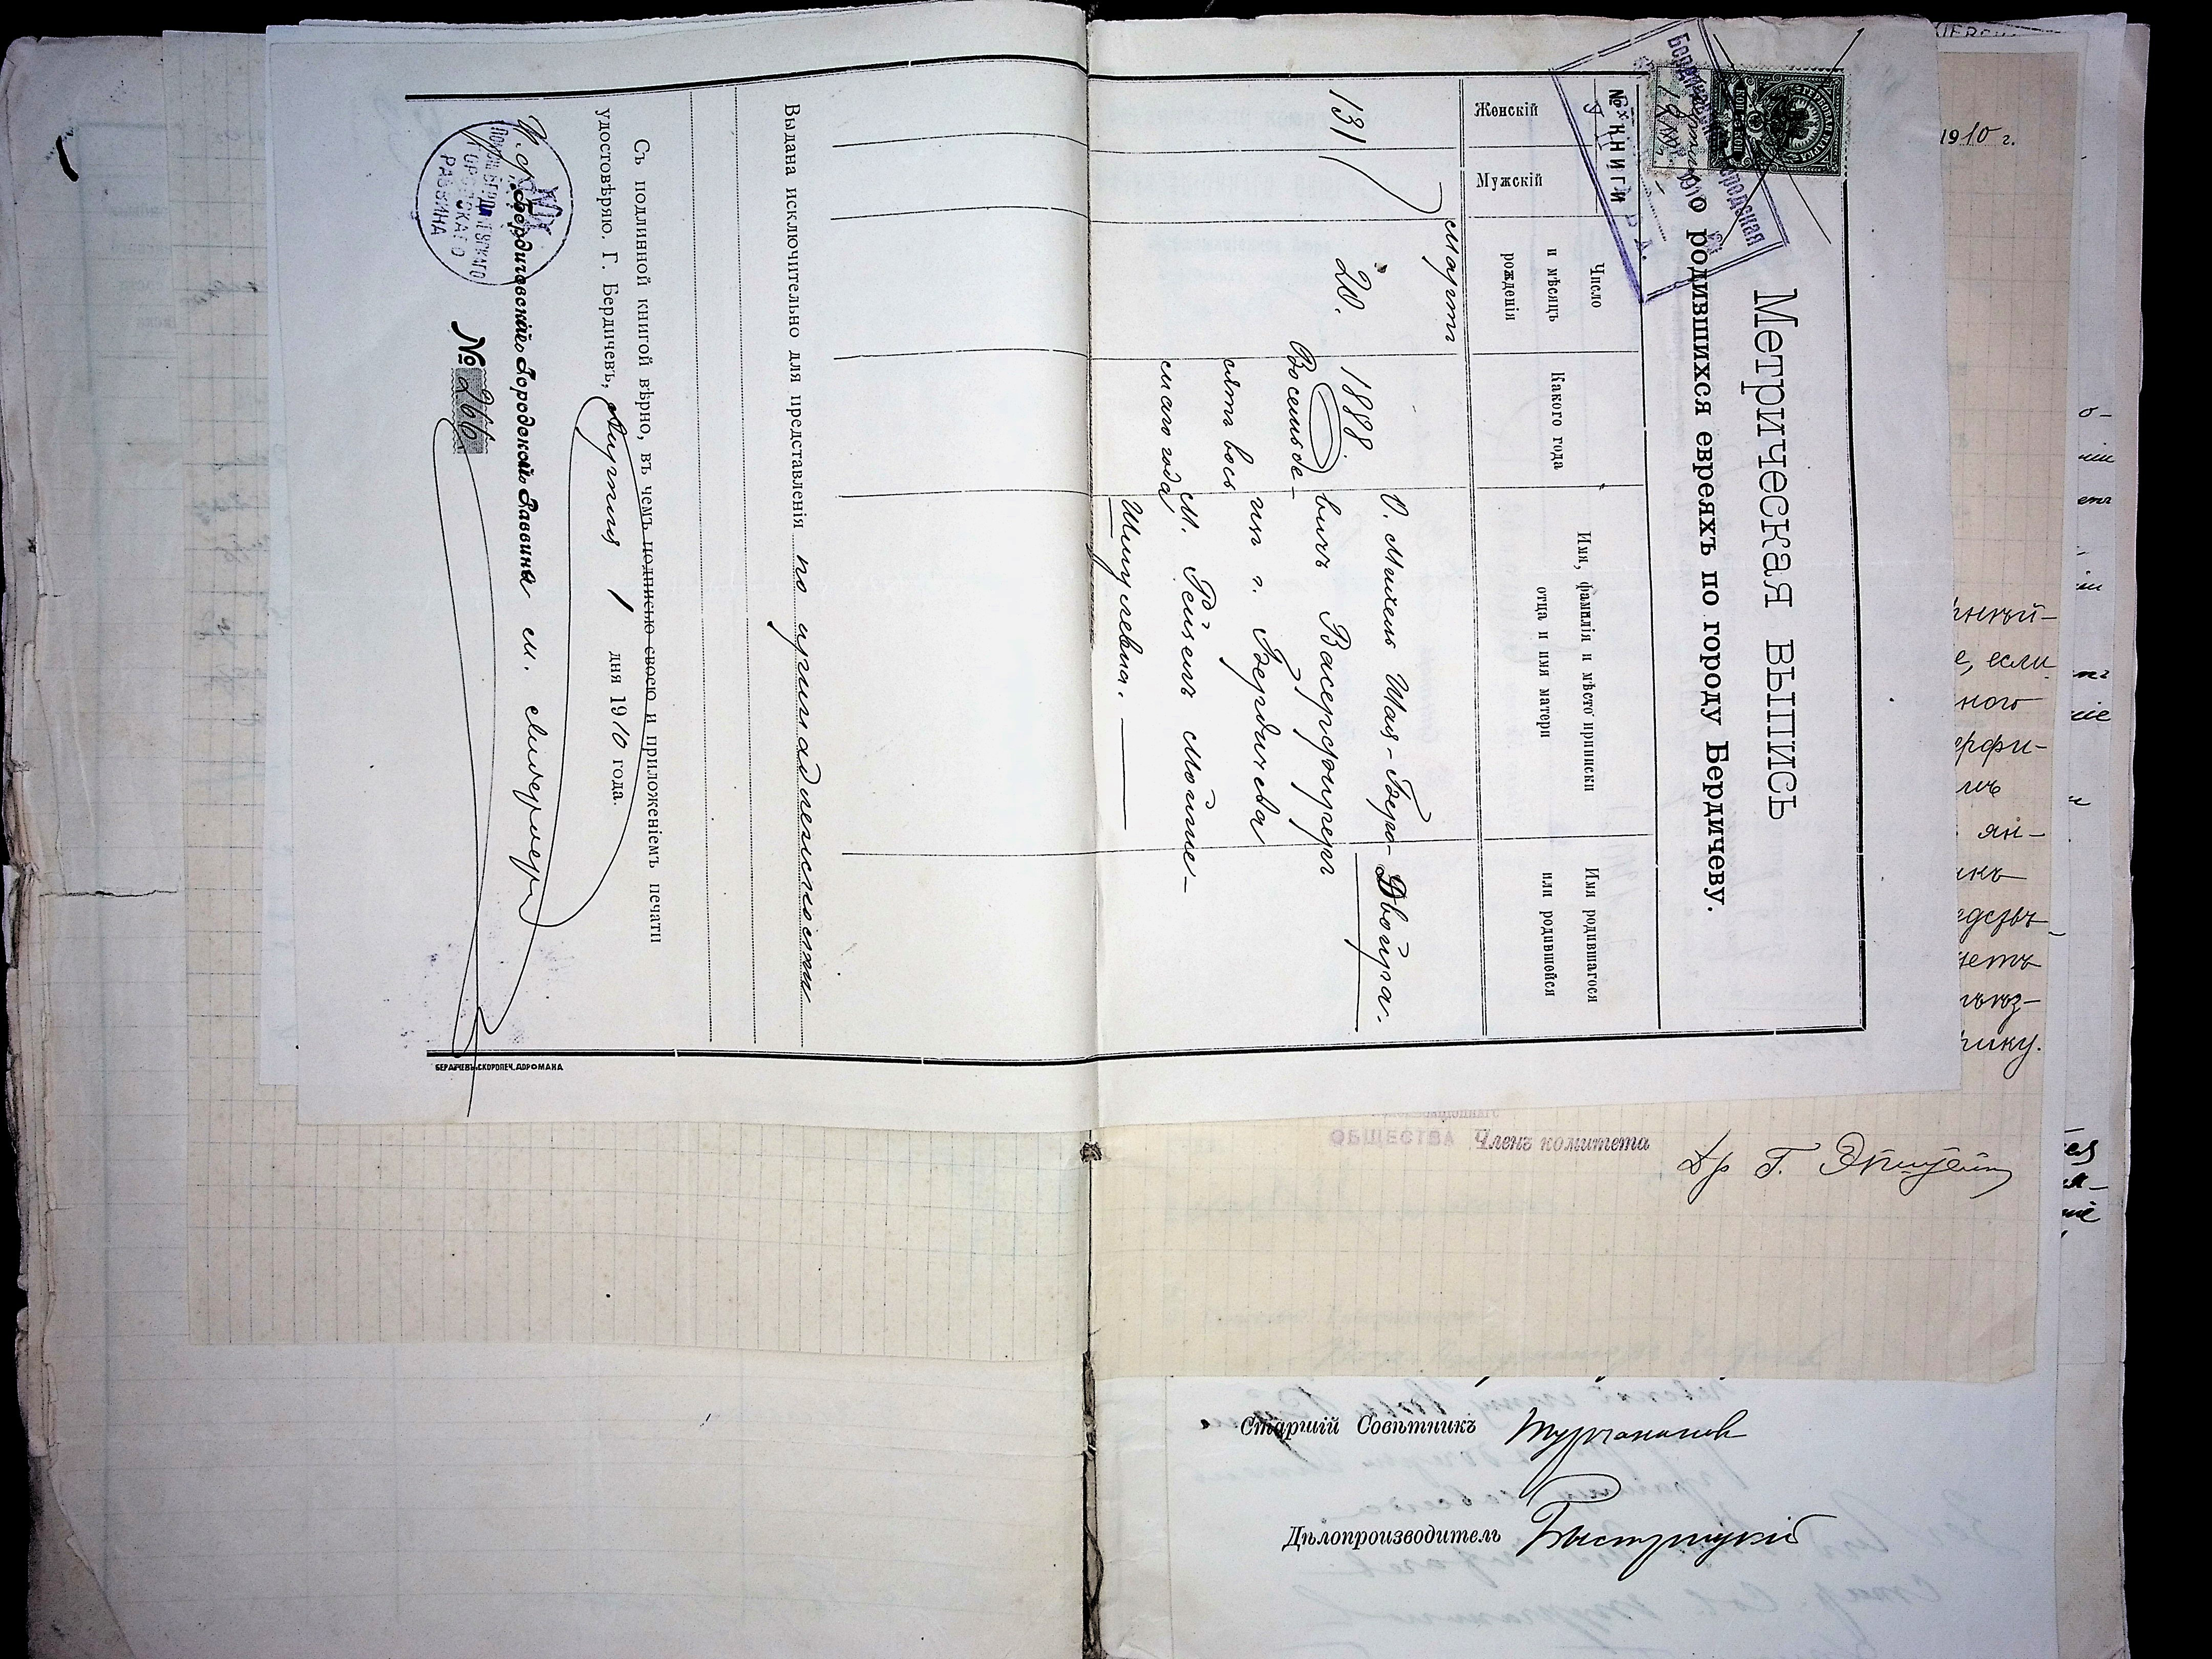 Метрическая выпись
о родившихся евреяхъ по городу Бердичеву.
№ КНИГИ
Женскій
Мужскій
Число
и мѣсяцъ
рожденія
Какого года
Имя, фамилія и мѣсто приписки
отца и имя матери
Имя родившагося
или родившейся
131
Мартъ
20.
1888.
Восемьде-
сятъ вось
маго года
О. Михель Шая-Беро-
вичъ Васерфиреръ
изъ г. Бердичева
М. Рейзель Мойше-
Шмулевна.
Двойра.
Выдана исключительно для представленія по принадлежности
Съ подлинной книгой вѣрно, въ чемъ подписью своею и приложеніемъ печати
удостовѣряю. Г. Бердичевъ, Апрѣля 1 дня 1910 года.
И. об. Бердичевскій Городской Раввинъ М.
ГОРОДСКАГО
РАВВИНА
№ 266
БЕРДИЧЕВЪ, СКОРОПЕЧ. Д. РОМАНА
1910 г.
е, если
ного
ерфи-
ян-
нику.
ОБЩЕСТВА Членъ комитета
Др Г. Эпштейнъ
Старшій Совѣтникъ Турчаниновъ
Дѣлопроизводитель Быстрицкій